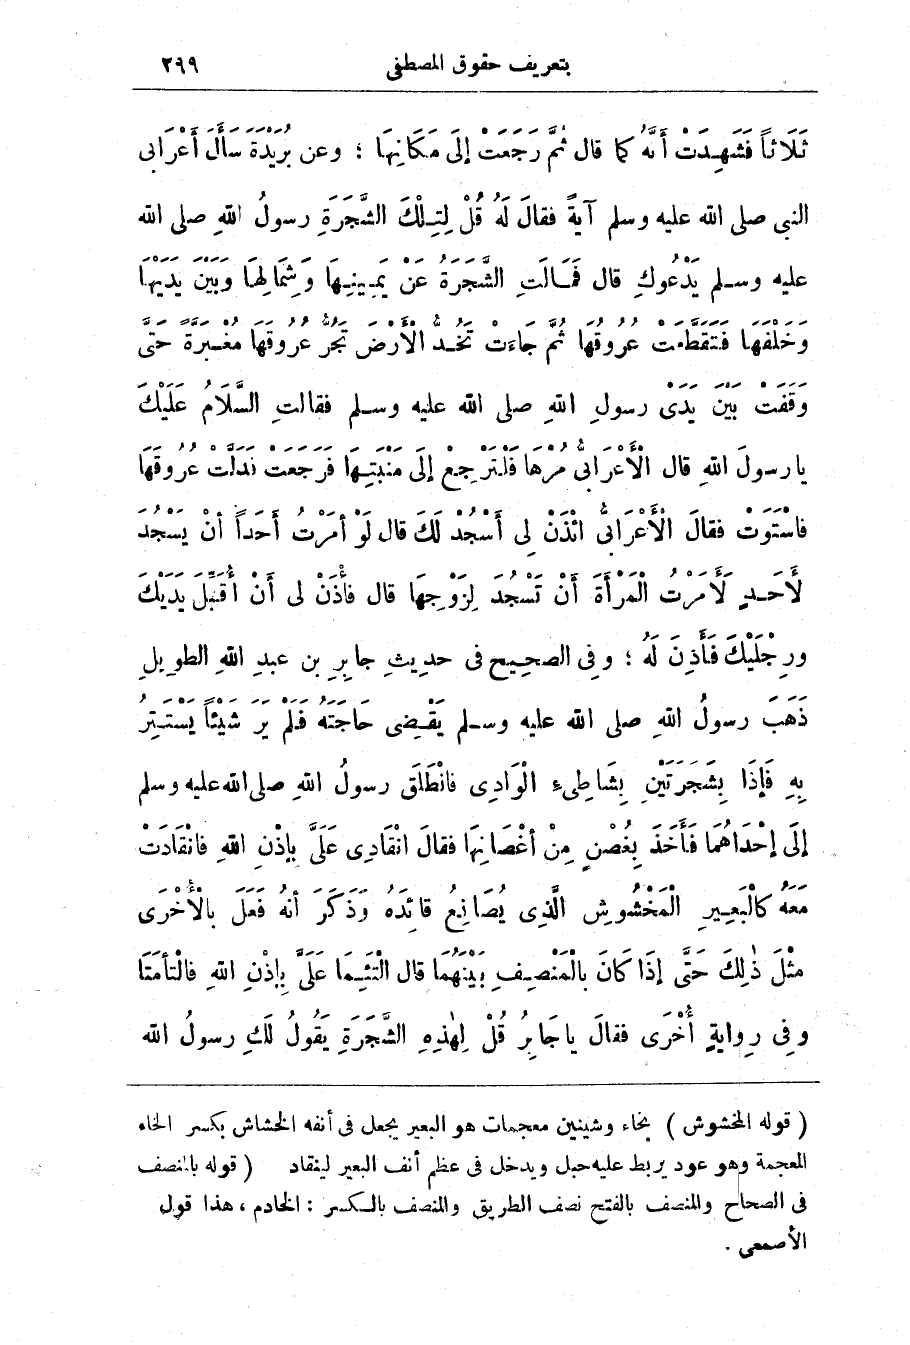 بتعريف حقوق المصطفى ٢٩٩
ثَلَاثاً فَشَهِدَتْ أَنَّهُ كما قال ثُمَّ رَجَعَتْ إلَى مَكَانِهَا ؛ وعن بُرَيْدَةَ سَأَلَ أَعْرَابى
النبى صلى الله عليه وسلم آيَةً فقالَ لَهُ قُلْ لِتِلْكَ الشَّجَرَةِ رسولُ اللهِ صلى الله
عليه وسلم يَدْعُوكِ قال فَمَالَتِ الشَّجَرَةُ عَنْ يَمِينِهَا وَشِمَالِهَا وَبَيْنَ يَدَيْهَا
وَخَلْفَهَا فَتَقَطَّعَتْ عُرُوقُهَا ثُمَّ جَاءَتْ تَخُدُّ الْأَرْضَ تَجُرُّ عُرُوقَهَا مُغْبَرَّةً حَتَّى
وَقَفَتْ بَيْنَ يَدَىْ رسولِ اللهِ صلى الله عليه وسلم فقالتِ السَّلَامُ عَلَيْكَ
يا رسولَ اللهِ قال الْأَعْرَابىُّ مُرْهَا فَلْتَرْجِعْ إلَى مَنْبَتِهَا فَرَجَعَتْ فَدَلَّتْ عُرُوقَهَا
فَاسْتَوَتْ فقالَ الْأَعْرَابىُّ ائْذَنْ لِى أَسْجُدْ لَكَ قال لَوْ أمَرْتُ أَحَداً أنْ يَسْجُدَ
لأَحَدٍ لَأَمَرْتُ الْمَرْأَةَ أَنْ تَسْجُدَ لِزَوْجِهَا قال فأْذَنْ لى أَنْ أُقَبِّلَ يَدَيْكَ
ورِجْلَيْكَ فَأَذِنَ لَهُ ؛ وفى الصحيح فى حديثِ جابِرِ بن عبدِ اللهِ الطويلِ
ذَهَبَ رسولُ اللهِ صلى الله عليه وسلم يَقْضِى حَاجَتَهُ فَلَمْ يَرَ شَيْئاً يَسْتَتِرُ
بِهِ فَإذَا بِشَجَرَتَيْنِ بِشَاطِىءِ الْوَادِى فانْطَلَقَ رسولُ اللهِ صلى الله عليه وسلم
إلَى إحْدَاهُمَا فَأَخَذَ بِغُصْنٍ مِنْ أغْصَانِهَا فقالَ انْقَادِى عَلَىَّ بإذْنِ اللهِ فانْقَادَتْ
مَعَهُ كالْبَعِيرِ الْمَخْشُوشِ الَّذِى يُصَانِعُ قائدَهُ وَذَكَرَ أنهُ فَعَلَ بِالْأُخْرَى
مثْلَ ذٰلِكَ حَتَّى إذَا كانَ بِالْمَنْصِفِ بَيْنَهُمَا قال الْتَئِمَا عَلَىَّ بِإذْنِ اللهِ فالْتَأَمَتَا
وفى روايةٍ أُخْرَى فقالَ ياجَابِرُ قُلْ لِهٰذِهِ الشَّجَرَةِ يَقُولُ لَكِ رسولُ الله
( قوله المخشوش ) بخاء وشينين معجمات هو البعير يجعل فى أنفه الخشاش بكسر الخاء
المعجمة وهو عود يربط عليه حبل ويدخل فى عظم أنف البعير لينقاد ( قوله بالمنصف
فى الصحاح والمنصف بالفتح نصف الطريق والمنصف بالكسر : الخادم ، هذا قول
الأصمعى .